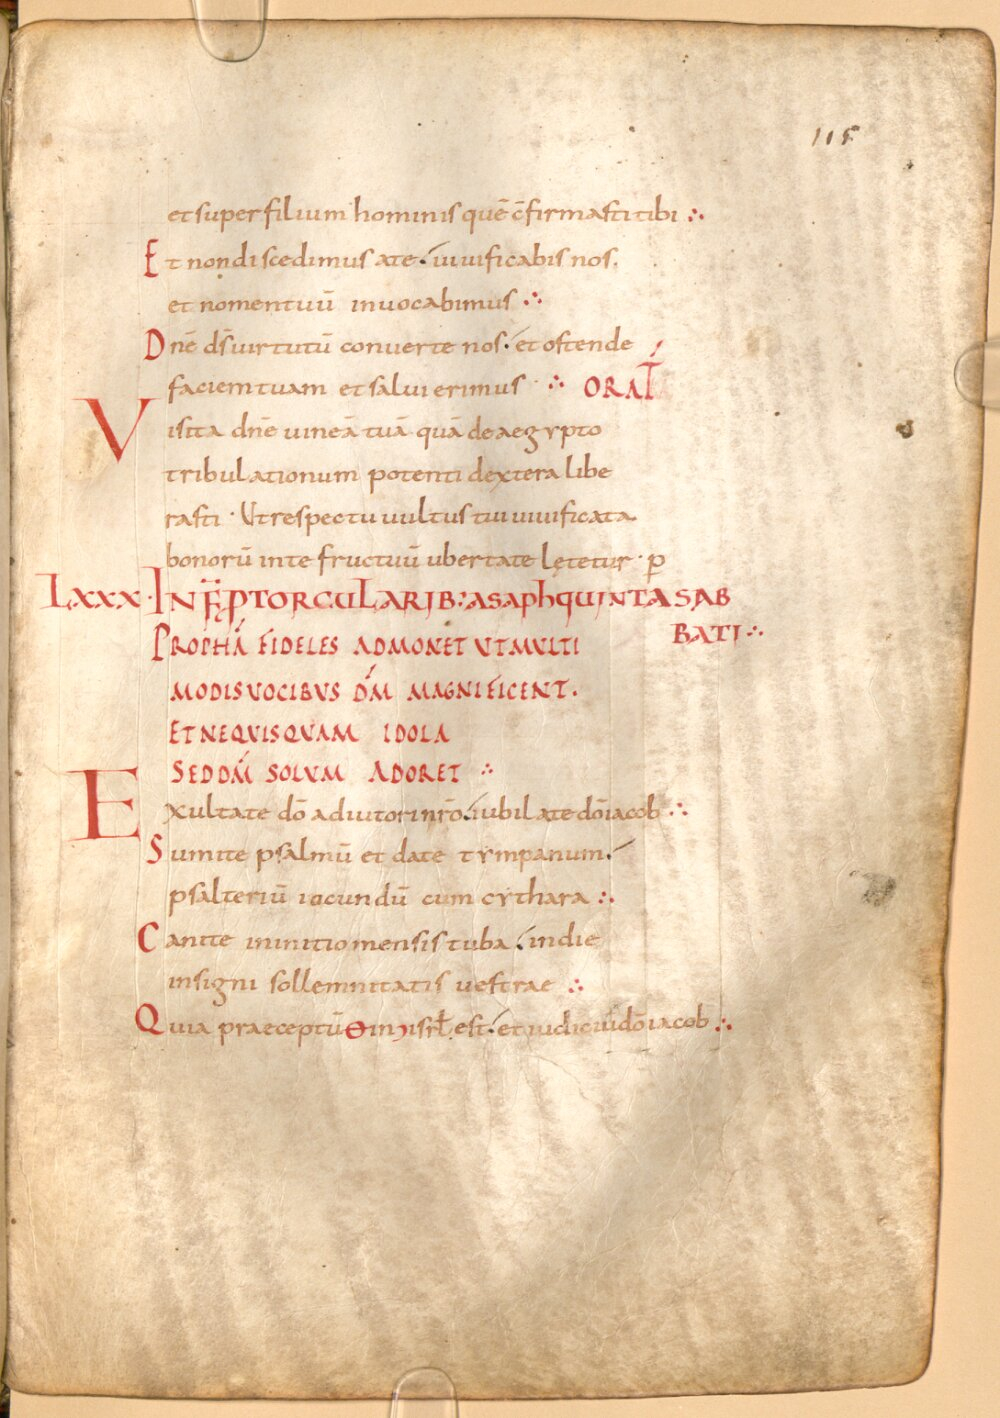 115
et super filium hominis quē c̄firmasti tibi ∴
Et non discedimus a te. uiuificabis nos.
et nomen tuū inuocabimus ∴
Dnē ds̄ uirtutū conuerte nos. et ostende
faciem tuam et salui erimus ∴ ORAT̄
Visita dnē uineā tuā quā de aegypto
tribulationum potenti dextera libe
rasti · Ut respectu uultus tui uiuificata
bonorū in te fructuū ubertate lętetur · p̄
LXXX · IN TORCULARIB: ASAPH QUINTA SAB
BATI ∴
PROPHĀ FIDELES ADMONET UT MULTI
MODIS VOCIBVS DM̄ MAGNIFICENT.
ET NEQUISQVAM IDOLA
SED DM̄ SOLVM ADORET ∴
Exultate dō adiutori nr̄o. iubilate dō iacob ∴
Sumite psalmū et date tympanum.
psalteriū iocundū cum cythara ∴
Canite in initio mensis tuba. in die
insigni sollemnitatis uestrae ∴
Quia praeceptū in isrl̄ est. et iudiciū dō iacob ∴